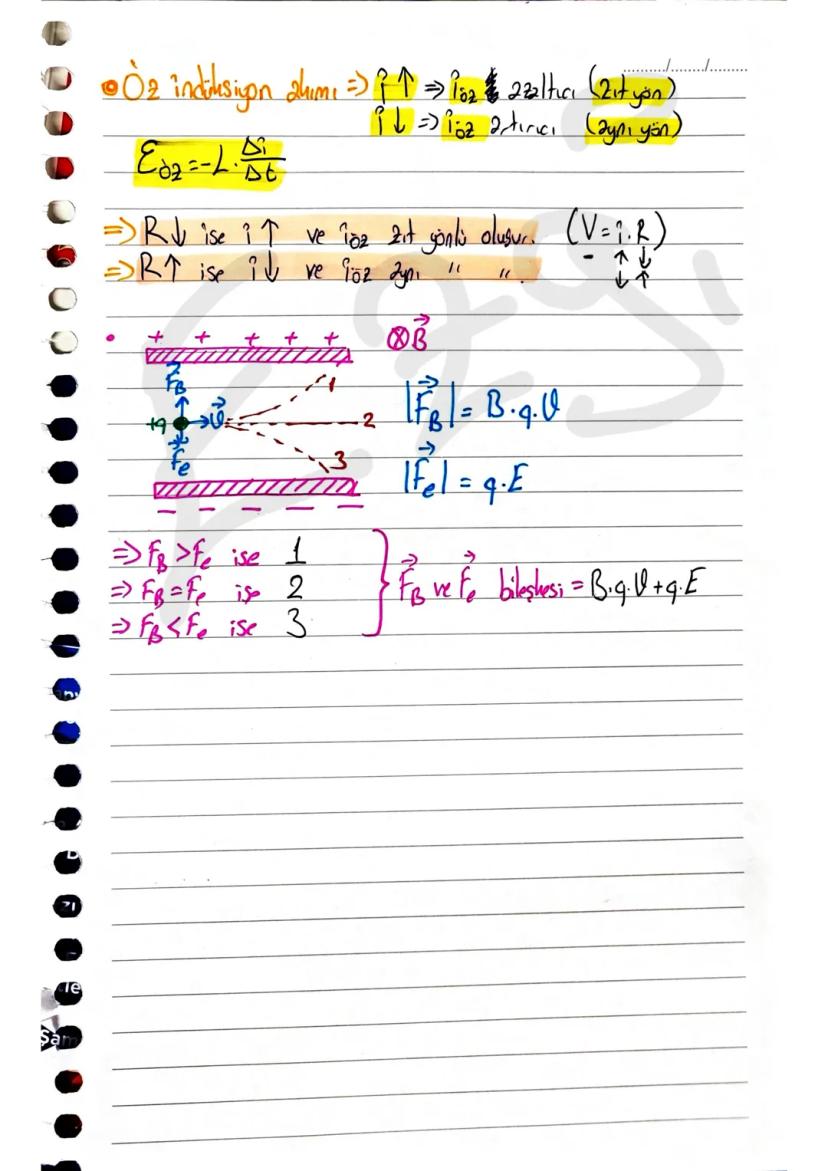 Öz indüksiyon akımı ⇒ i↑ ⇒ iöz azaltıcı (zıt yön)
i↓ ⇒ iöz artırıcı (aynı yön)
Ɛöz = -L · Δi/Δt
⇒ R↓ ise i↑ ve iöz zıt yönlü oluşur. (V = i.R)
⇒ R↑ ise i↓ ve iöz aynı " ".
- ↑ ↓
↓ ↑
+ + + + +
⊗B⃗
F⃗B
1
+q V⃗ 2
F⃗e
3
|F⃗B| = B.q.V
|F⃗e| = q.E
— — — — —
⇒ FB > Fe ise 1
⇒ FB = Fe işe 2
⇒ FB < Fe ise 3
F⃗B ve F⃗e bileşkesi = B.q.V + q.E